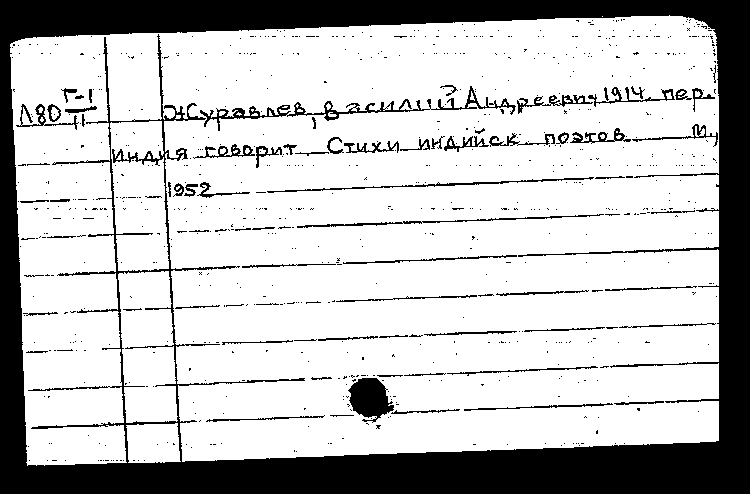 Л80 Г-1/11 Журавлев, Василий Андреевич 1914. пер.
Индия говорит. Стихи индийск. поэтов. М.,
1952